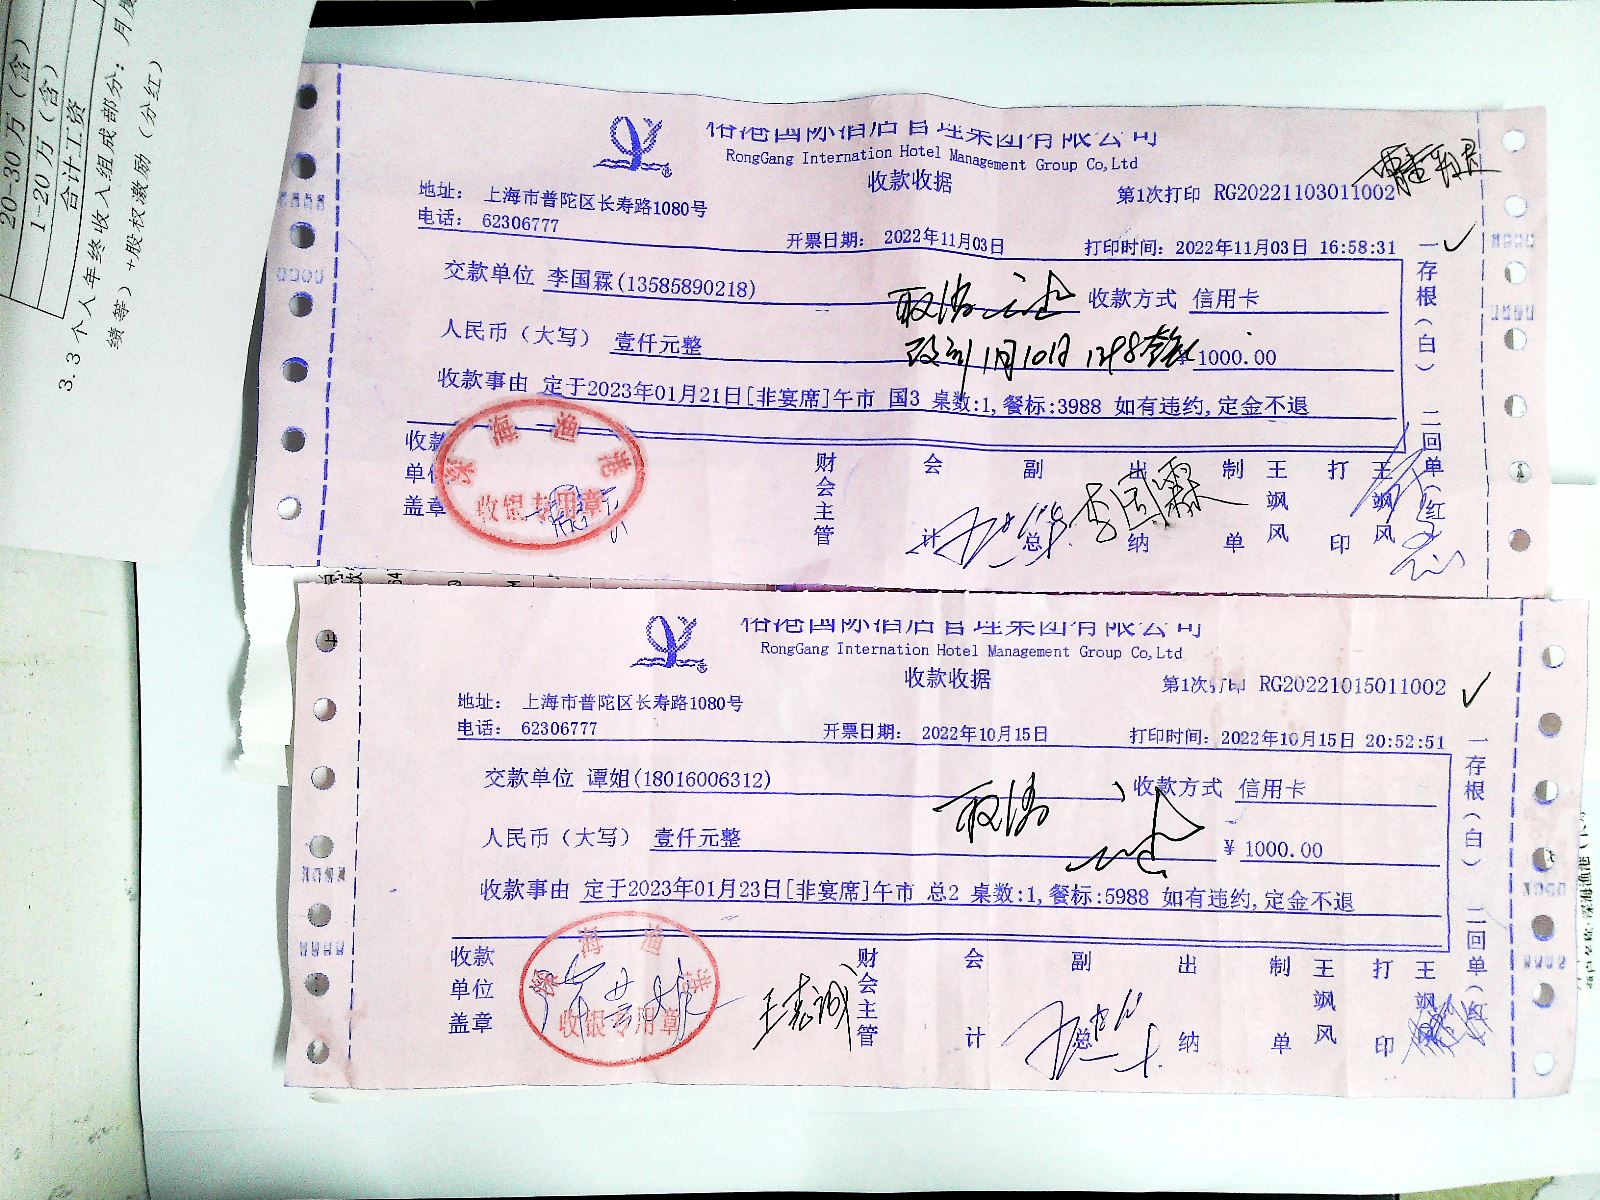 20-30万（含）
1-20万（含）
合计工资
3.3 个人年终收入组成部分：月度
绩等）+股权激励（分红）
榕港国际酒店管理集团有限公司
RongGang Internation Hotel Management Group Co,Ltd
收款收据
第1次打印 RG20221103011002
地址： 上海市普陀区长寿路1080号
电话： 62306777
开票日期： 2022年11月03日
打印时间：2022年11月03日 16:58:31
交款单位 李国霖(13585890218)
取消
收款方式 信用卡
人民币（大写） 壹仟元整
改到1月10日 1398套餐
¥ 1000.00
收款事由 定于2023年01月21日[非宴席]午市 国3 桌数:1,餐标:3988 如有违约,定金不退
一存根（白） 二回单（红）
收款单位盖章
深海渔港
收银专用章
财会主管
会计
副总
出纳
李国霖
制单
王飒风
打印
王飒风
榕港国际酒店管理集团有限公司
RongGang Internation Hotel Management Group Co,Ltd
收款收据
第1次打印 RG20221015011002
地址： 上海市普陀区长寿路1080号
电话： 62306777
开票日期： 2022年10月15日
打印时间：2022年10月15日 20:52:51
交款单位 谭姐(18016006312)
取消
收款方式 信用卡
人民币（大写） 壹仟元整
¥ 1000.00
收款事由 定于2023年01月23日[非宴席]午市 总2 桌数:1,餐标:5988 如有违约,定金不退
一存根（白） 二回单（红）
收款单位盖章
深海渔港
收银专用章
王志诚
财会主管
会计
副总
出纳
制单
王飒风
打印
王飒风